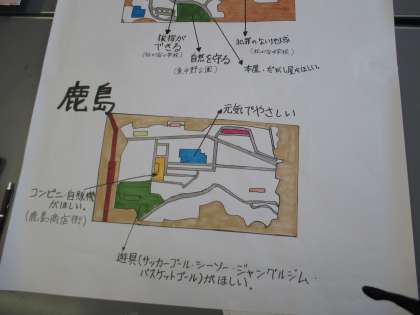 挨拶ができる
自然を守る
犯罪のない地域
本屋・だがし屋がほしい。
鹿島
元気でやさしい
コンビニ・自販機がほしい。
(鹿島商店街)
遊具(サッカーゴール・シーソー・ジャングルジム・
バスケットゴール)がほしい。